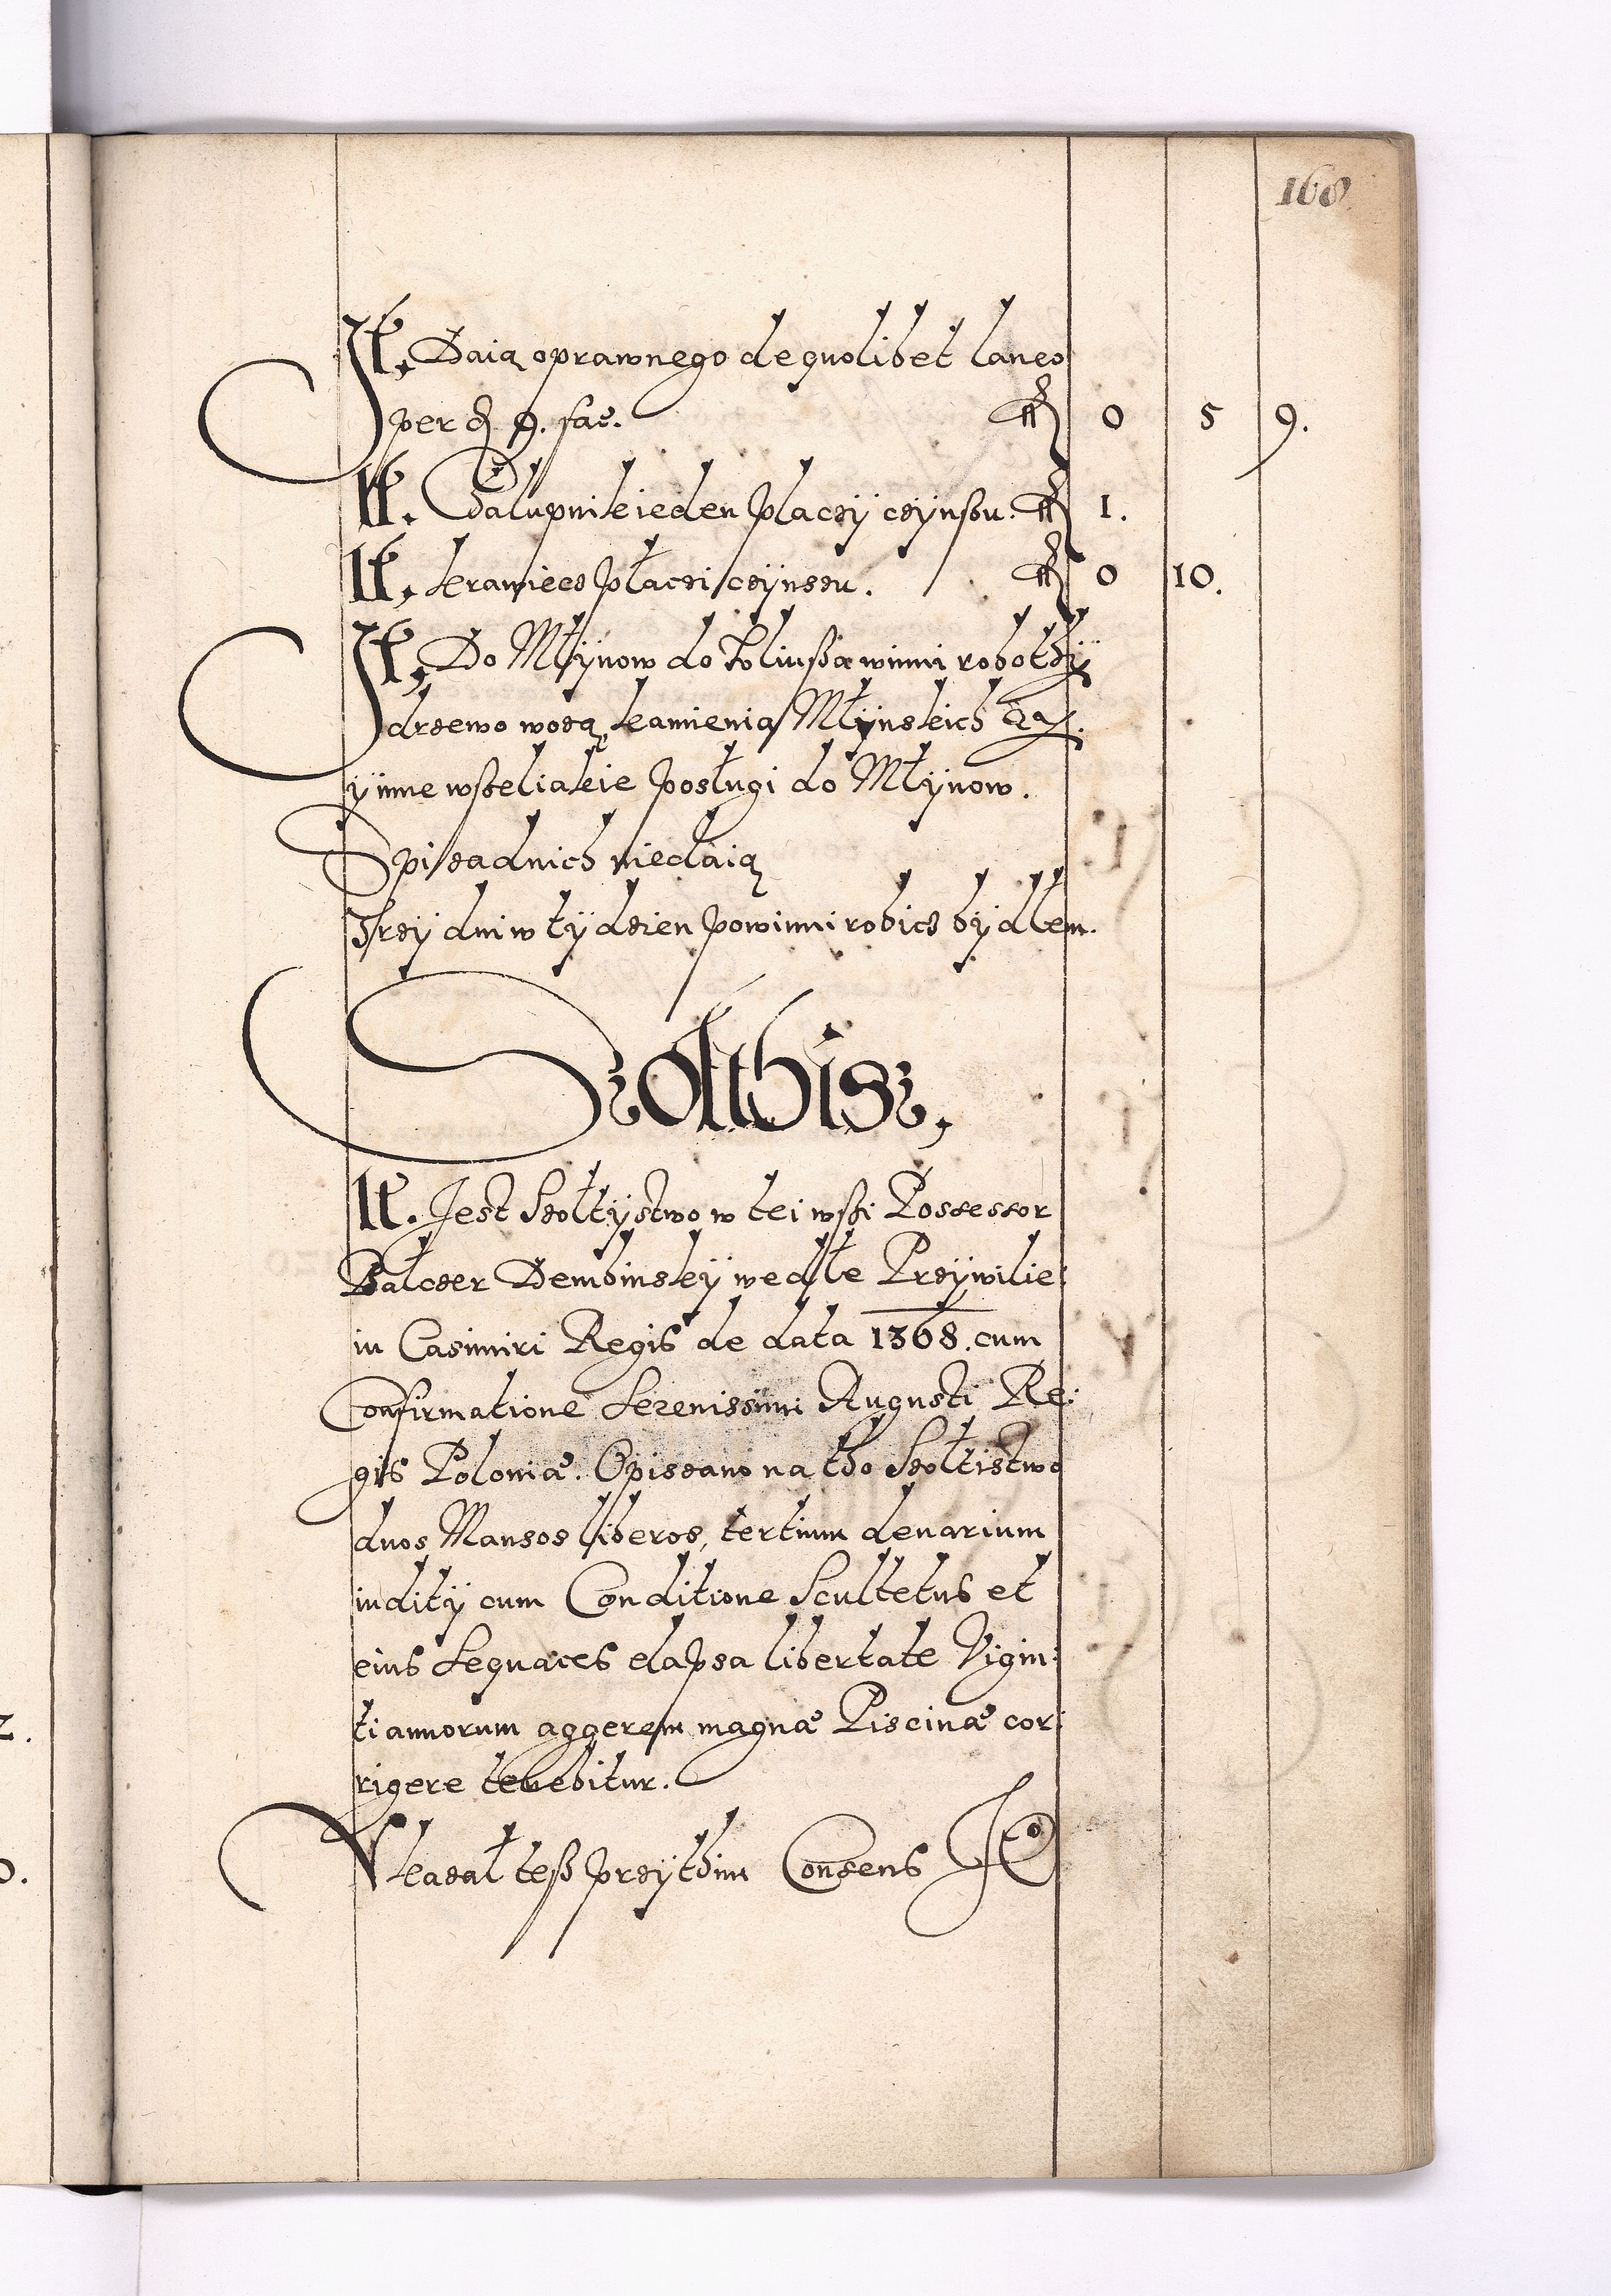 168
It. Daią oprawnego de quolibet laneo
per d 9. fac. fl 0 5 9.
It. Chalupnik ieden placzÿ czÿnßu. fl 1.
It. krawiecz płaczi czÿnszu. fl 0 10.
It. Do Młÿnow do winni robothÿ
drzewo wozą, kamienia Młÿnskich
ÿinne wßeliakie posługi do Młÿnow.
Spiżadnich niedaią
Trzÿ dni w tÿdzien powinni robicz bÿdłem.
Szolthisz,
It. Jest Szołtÿstwo w tei wßi Possessor
Balczer Dembinskÿ wedłe Przÿwilie:
iu Casimiri Regis de data 1368. cum
Confirmatione Serenissimi Augusti Re:
gis Poloniæ. Opiszano na tho Szołtistwo
duos Mansos liberos, tertium denarium
iuditÿ cum Conditione Scultetus et
eius Sequaces elapsa libertate Vigin:
ti annorum aggerem magnæ Piscinæ cor:
rigere tenebitur.
Vkazał teß przÿthim Consens
2.
0.